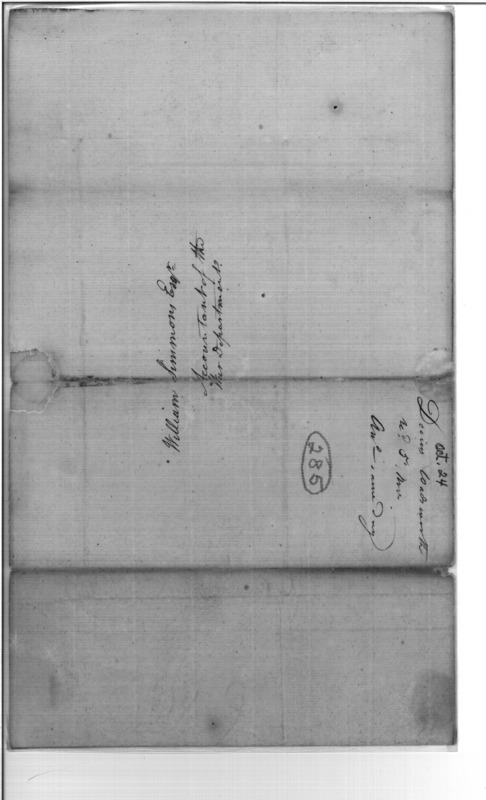 William Simmons Esqr.
Accountant of the
War Department.
285
Oct. 24
Decius Wadsworth
5. Nov
Ansd same Day